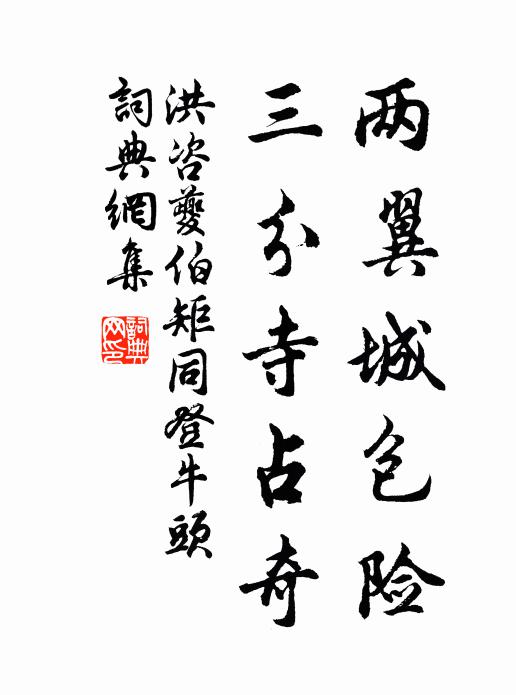 两翼城包险
三分寺占奇
洪咨夔伯矩同登牛頭
詞典網集
詞典網印